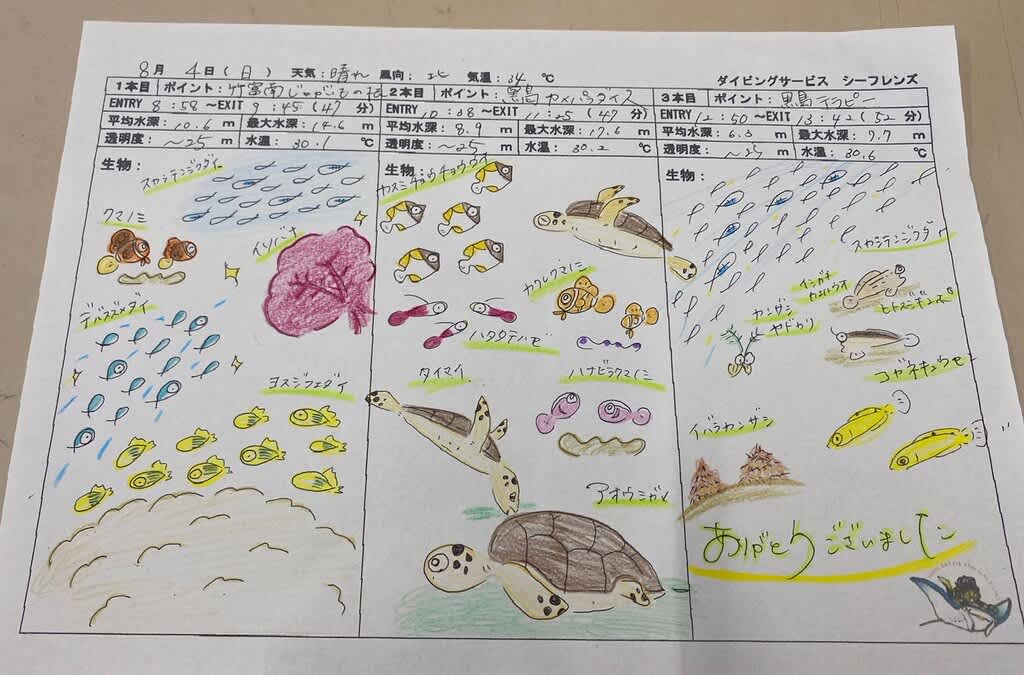 8月 4日(日) 天気:晴れ 風向:北 気温:34 ℃
ダイビングサービス シーフレンズ
1本目 ポイント:竹富南じゃがいもの根
ENTRY 8:58 ～EXIT 9:45 (47 分)
平均水深:10.6 m 最大水深:14.6 m
透明度:～25 m 水温:30.1 ℃
生物:
スカシテンジクダイ
クマノミ
イソバナ
デバスズメダイ
ヨスジフエダイ
2本目 ポイント:黒島カメパラダイス
ENTRY 10:38 ～EXIT 11:25 (47 分)
平均水深:8.9 m 最大水深:17.6 m
透明度:～25 m 水温:30.2 ℃
生物:
カスミチョウチョウウオ
カクレクマノミ
ハタタテハゼ
タイマイ
ハナビラクマノミ
アオウミガメ
3本目 ポイント:黒島テラピー
ENTRY 12:50 ～EXIT 13:42 (52 分)
平均水深:6.3 m 最大水深:9.7 m
透明度:～25 m 水温:30.6 ℃
生物:
スカシテンジクダイ
イシガキ
カエルウオ
カンザシ
ヤドカリ
ヒトスジギンポ
コガネキュウセン
イバラカンザシ
ありがとうございました